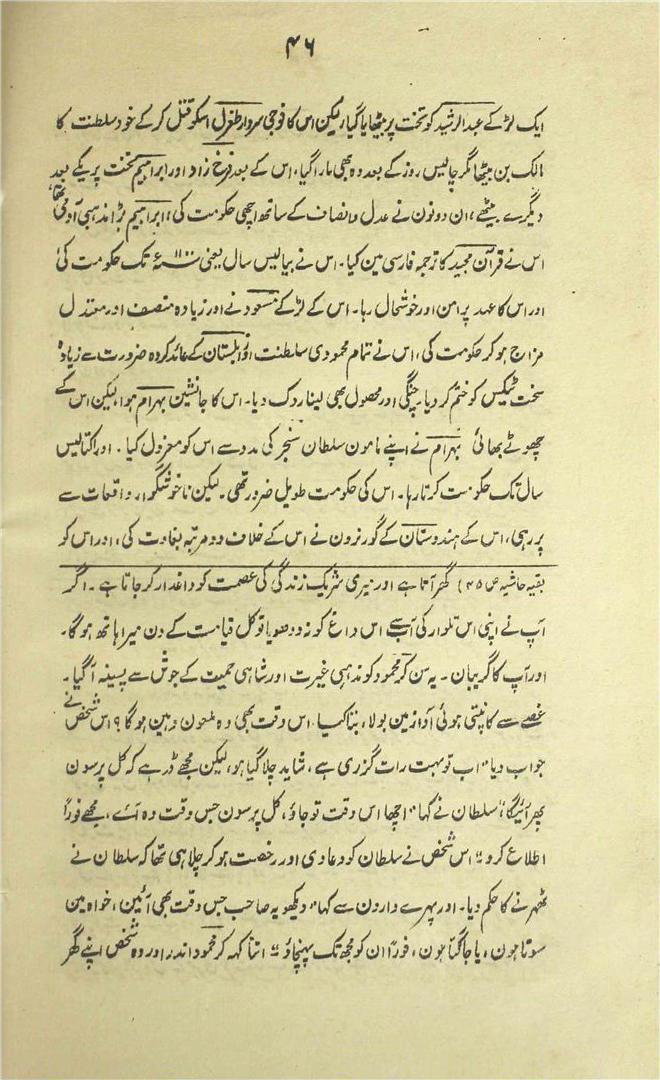 ۴۶
ایک لڑکے عبدالرشید کو تخت پر بیٹھایا گیا، لیکن اس کا فوجی سردار طغرل اسکو قتل کرکے خود سلطنت کا
مالک بن بیٹھا مگر چالیس روز کے بعد وہ بھی مارا گیا، اس کے بعد فرخ زاد اور ابراہیم تخت پر یکے بعد
دیگرے بیٹھے، ان دونون نے عدل و انصاف کے ساتھ اچھی حکومت کی، ابراہیم بڑا مذہبی آدمی تھا،
اس نے قرآن مجید کا ترجمہ فارسی مین کیا۔ اس نے بیالیس سال یعنی ۱۱۰۰ء تک حکومت کی
اور اس کا عہد پر امن اور خوشحال رہا۔ اس کے لڑکے مسعود نے اور زیادہ منصف اور معتدل
مزاج ہو کر حکومت کی، اس نے تمام محمودی سلطنت اور زابلستان کے عائد کردہ ضرورت سے زیادہ
سخت ٹیکس کو ختم کر دیا۔ چنگی اور محصول بھی لینا روک دیا۔ اس کا جانشین بہرام ہوا، لیکن اس کے
چھوٹے بھائی بہرام نے اپنے مامون سلطان سنجر کی مدد سے اس کو معزول کیا۔ اور اکتالیس
سال تک حکومت کرتا رہا۔ اس کی حکومت طویل ضرور تھی۔ لیکن ناخوشگوار واقعات سے
پر رہی، اس کے ہندوستان کے گورنرون نے اس کے خلاف دو مرتبہ بغاوت کی، اور اس کو
بقیہ حاشیہ ص ۴۵) گھر آتا ہے اور میری شریک زندگی کی عصمت کو داغدار کر جاتا ہے۔ اگر
آپ نے اپنی اس تلوار کی آب سے اس داغ کو نہ دھویا تو کل قیامت کے دن میرا ہاتھ ہوگا۔
اور آپ کا گریبان۔ یہ سن کر محمود کو مذہبی غیرت اور شاہی حمیت کے جوش سے پسینہ آگیا۔
غصے سے کانپتی ہوئی آواز مین بولا، بتا کیا اس وقت بھی وہ ملعون وہین ہوگا؟ اس شخص نے
جواب دیا "اب تو بہت رات گزری ہے، شاید چلا گیا ہو، لیکن مجھے ڈر ہے کہ کل پرسون
پھر آئیگا، سلطان نے کہا "اچھا اس وقت تو جاؤ، کل پرسون جس وقت وہ آئے، مجھے فوراً
اطلاع کرو" اس شخص نے سلطان کو دعا دی اور رخصت ہو کر چلا ہی تھا کہ سلطان نے
ٹھہرنے کا حکم دیا۔ اور پہرے دارون سے کہا "دیکھو یہ صاحب جس وقت بھی آئین، خواہ مین
سوتا ہون، یا جاگتا ہون، فوراً ان کو مجھ تک پہنچاؤ" اتنا کہہ کر محمود اندر اور وہ شخص اپنے گھر